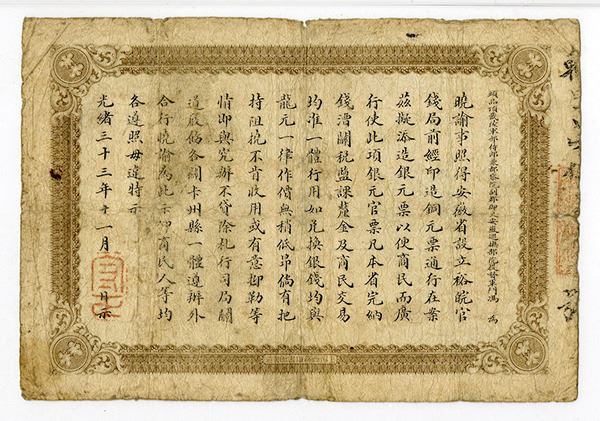 頭品頂戴陸軍部侍郎兼都察院副都御史安徽巡撫部院提督軍門馮 為
曉諭事照得安徽省設立裕皖官
錢局前經印造銅元票通行在案
茲擬添造銀元票以便商民而廣
行使此項銀元官票凡本省完納
錢漕關稅鹽課釐金及商民交易
均准一體行用如兌換銀錢均與
龍元一律作價無稍低昂倘有把
持阻撓不肯收用或有意抑勒等
情即與究辦不貸除札行司局關
道飭各關卡州縣一體遵辦外
合行曉諭為此示仰商民人等均
各遵照毋違特示
光緒三十三年十一月 日示